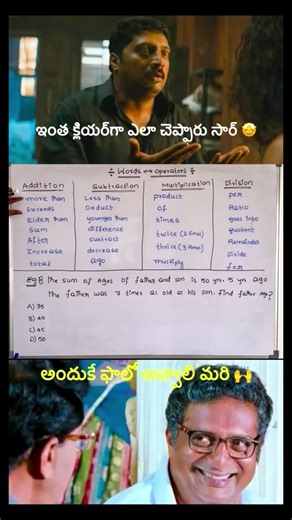 ఇంత క్లియర్‌గా ఎలా చెప్పారు సార్ 🤩
÷ Words ↔ operators ÷
Addition Subtraction Multiplication Division
more than Less than product per
Exceeds Deduct of Ratio
Elder than younger than times goes into
Sum difference twice (2 times) quotient
After subtract thrice (3 times) Remainder
Increase decrease multiply Divide
total ago for
the sum of Ages of father and son is 50 yrs. 5 yrs ago
the father was 7 times as old as his son. find father Age?
A) 35
B) 40
C) 45
D) 50
అందుకే ఫాలో అవ్వాలి మరి 🙌